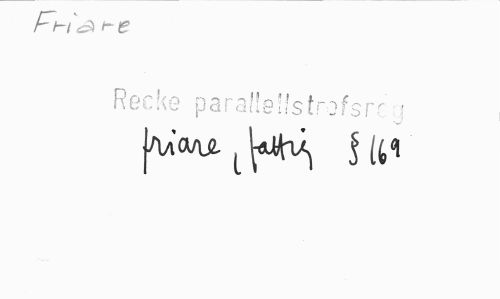 Friare
Recke parallellstrofsreg
friare, fattig § 169